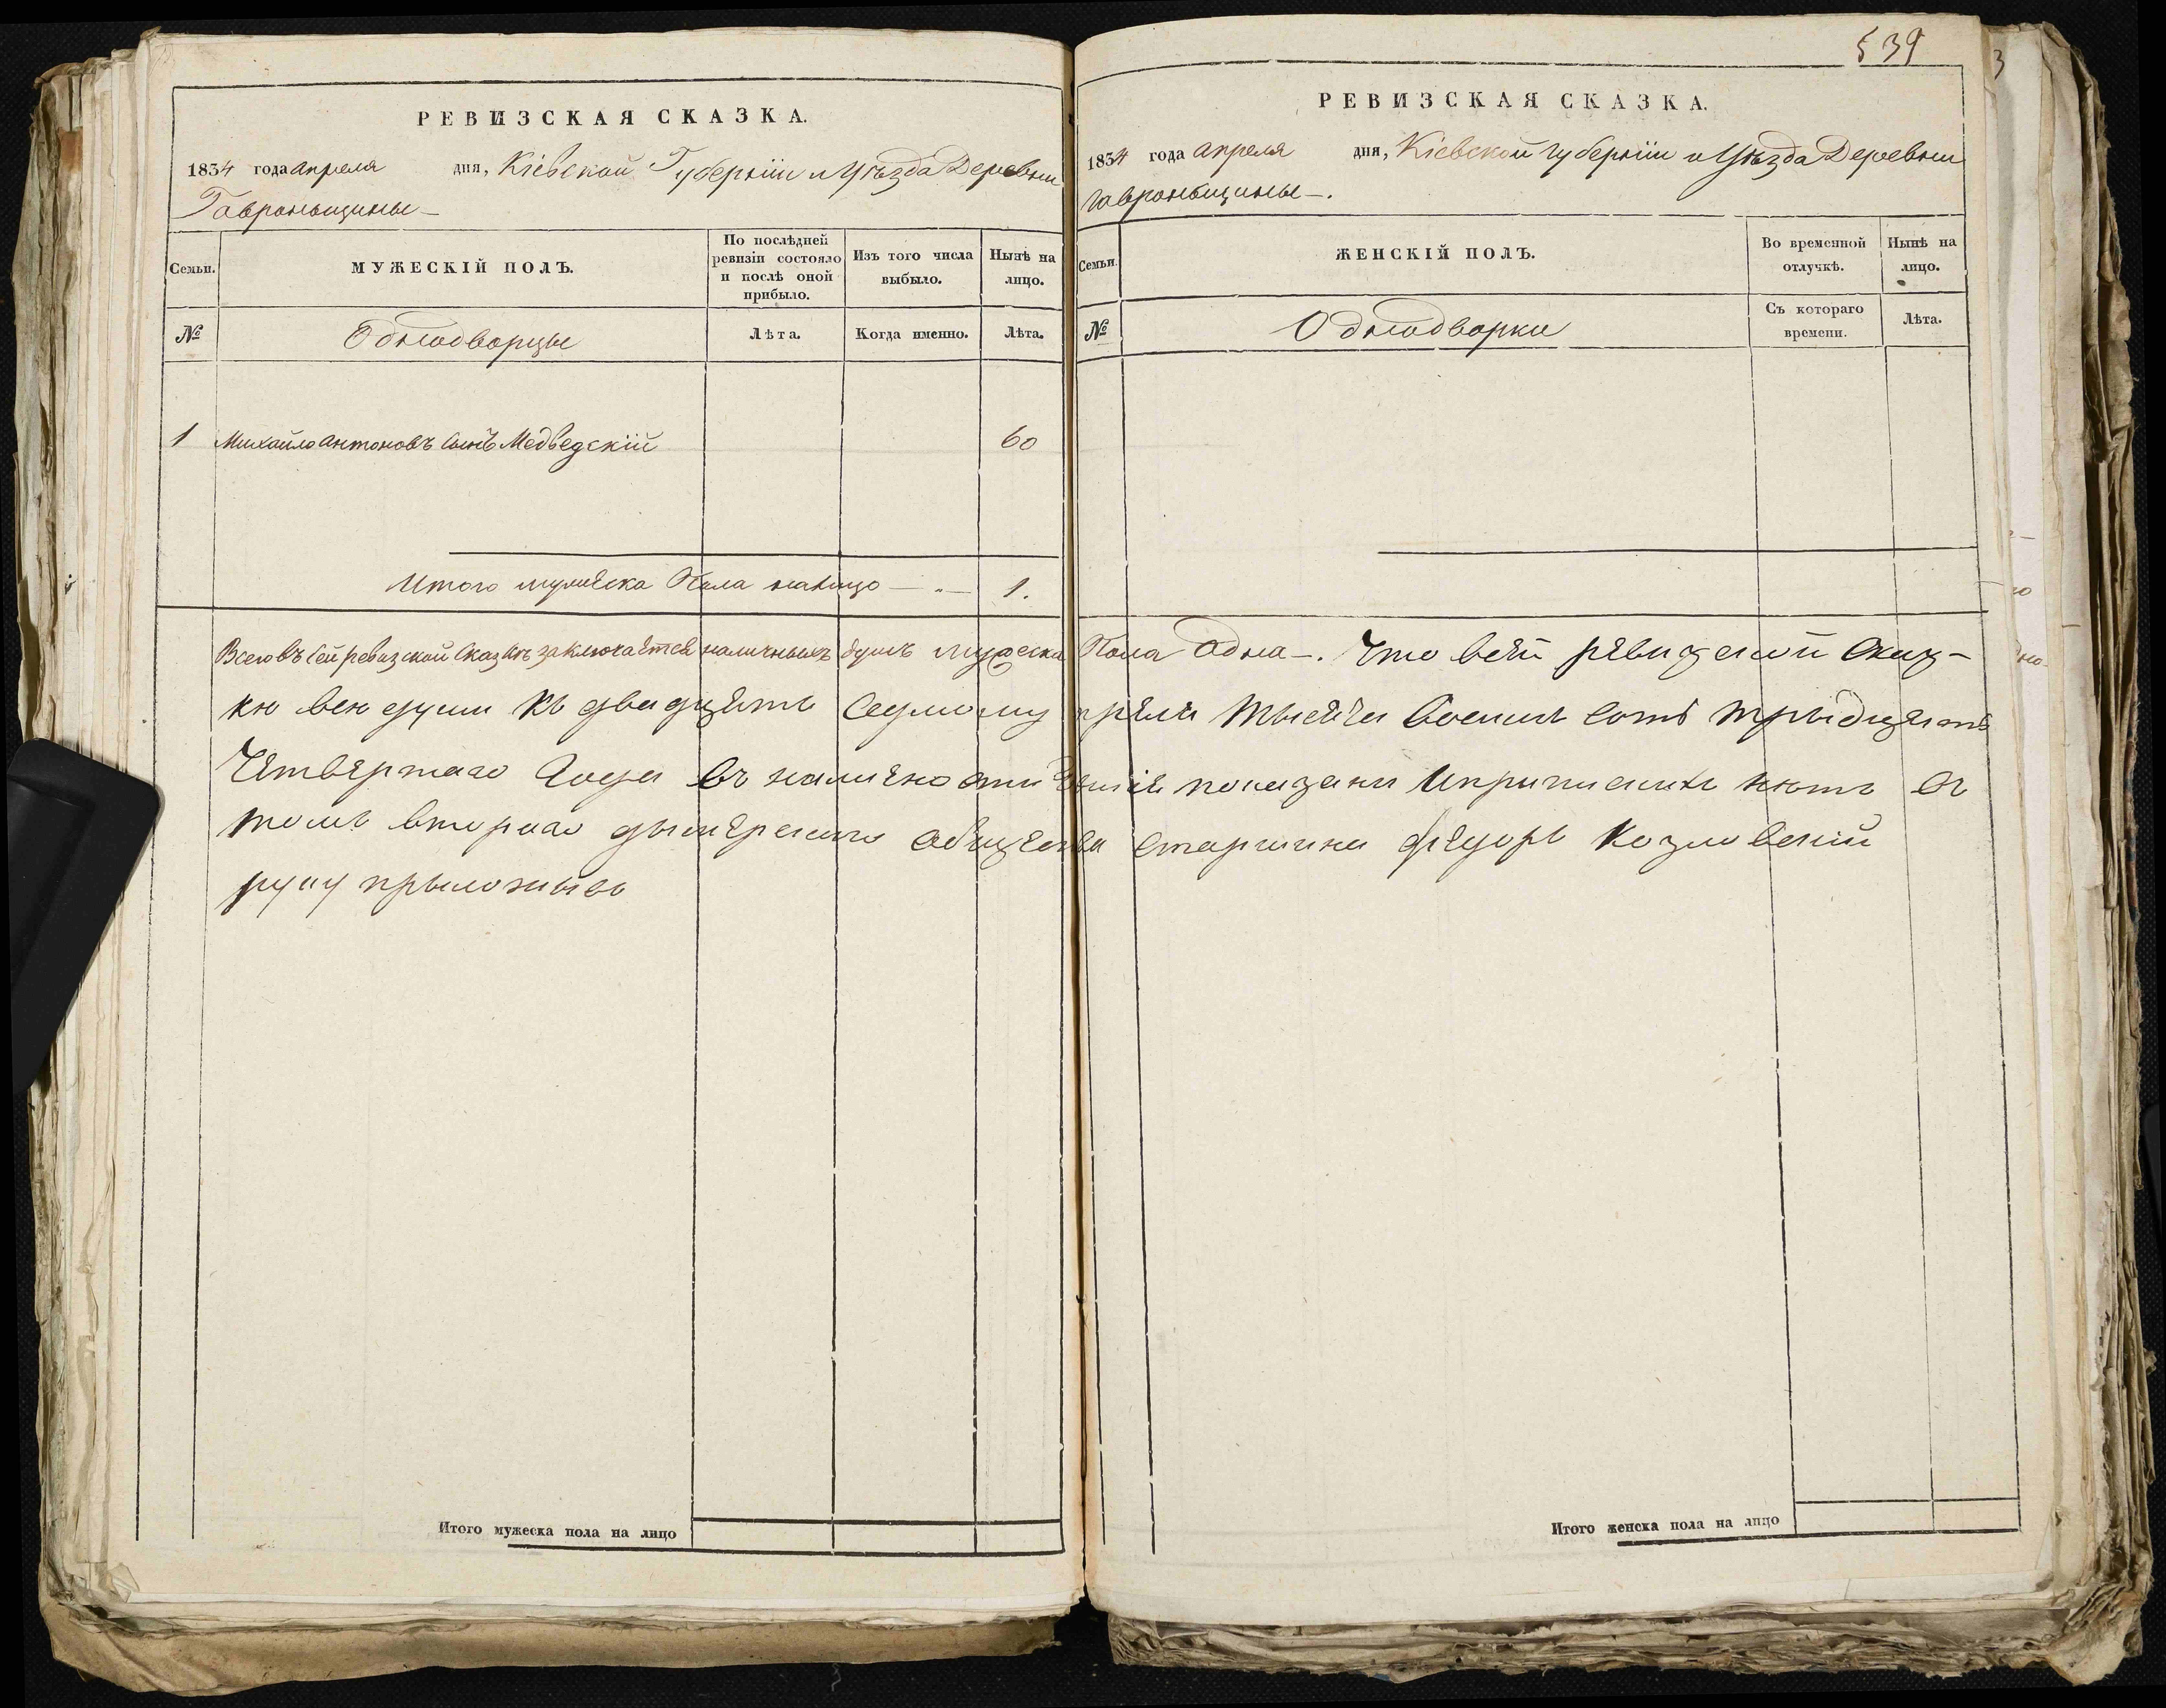 539
РЕВИЗСКАЯ СКАЗКА.
1834 года апреля дня, Кіевской Губерніи и Уѣзда Деревни
Гавроньщины –
Семьи.
МУЖЕСКІЙ ПОЛЪ.
По послѣдней ревизіи состояло и послѣ оной прибыло.
Изъ того числа выбыло.
Нынѣ на лицо.
№
Однодворцы
Лѣта.
Когда именно.
Лѣта.
1 Михайло Антоновъ сынъ Медведскій 60
Итого мужеска Пола налицо — „ — 1.
РЕВИЗСКАЯ СКАЗКА.
1834 года апреля дня, Кіевской губерніи и Уѣзда Деревни
Гавроньщины –.
Семьи.
ЖЕНСКІЙ ПОЛЪ.
Во временной отлучкѣ.
Нынѣ на лицо.
№
Однодворки
Съ котораго времени.
Лѣта.
Всего въ сей ревизской сказкѣ заключается наличныхъ душъ мужеска Пола Одна –. Что всей ревизской Сказ-
кѣ всѣ души къ двадцять Седмому преля Тысяча восимъ сотъ трыдцять
Четвертаго Года въ наличности показани ипрописнихъ нѣтъ въ
томъ втораго дымерского общества старшина федоръ Козловский
руку прыложывъ
Итого мужеска пола на лицо
Итого женска пола на лицо